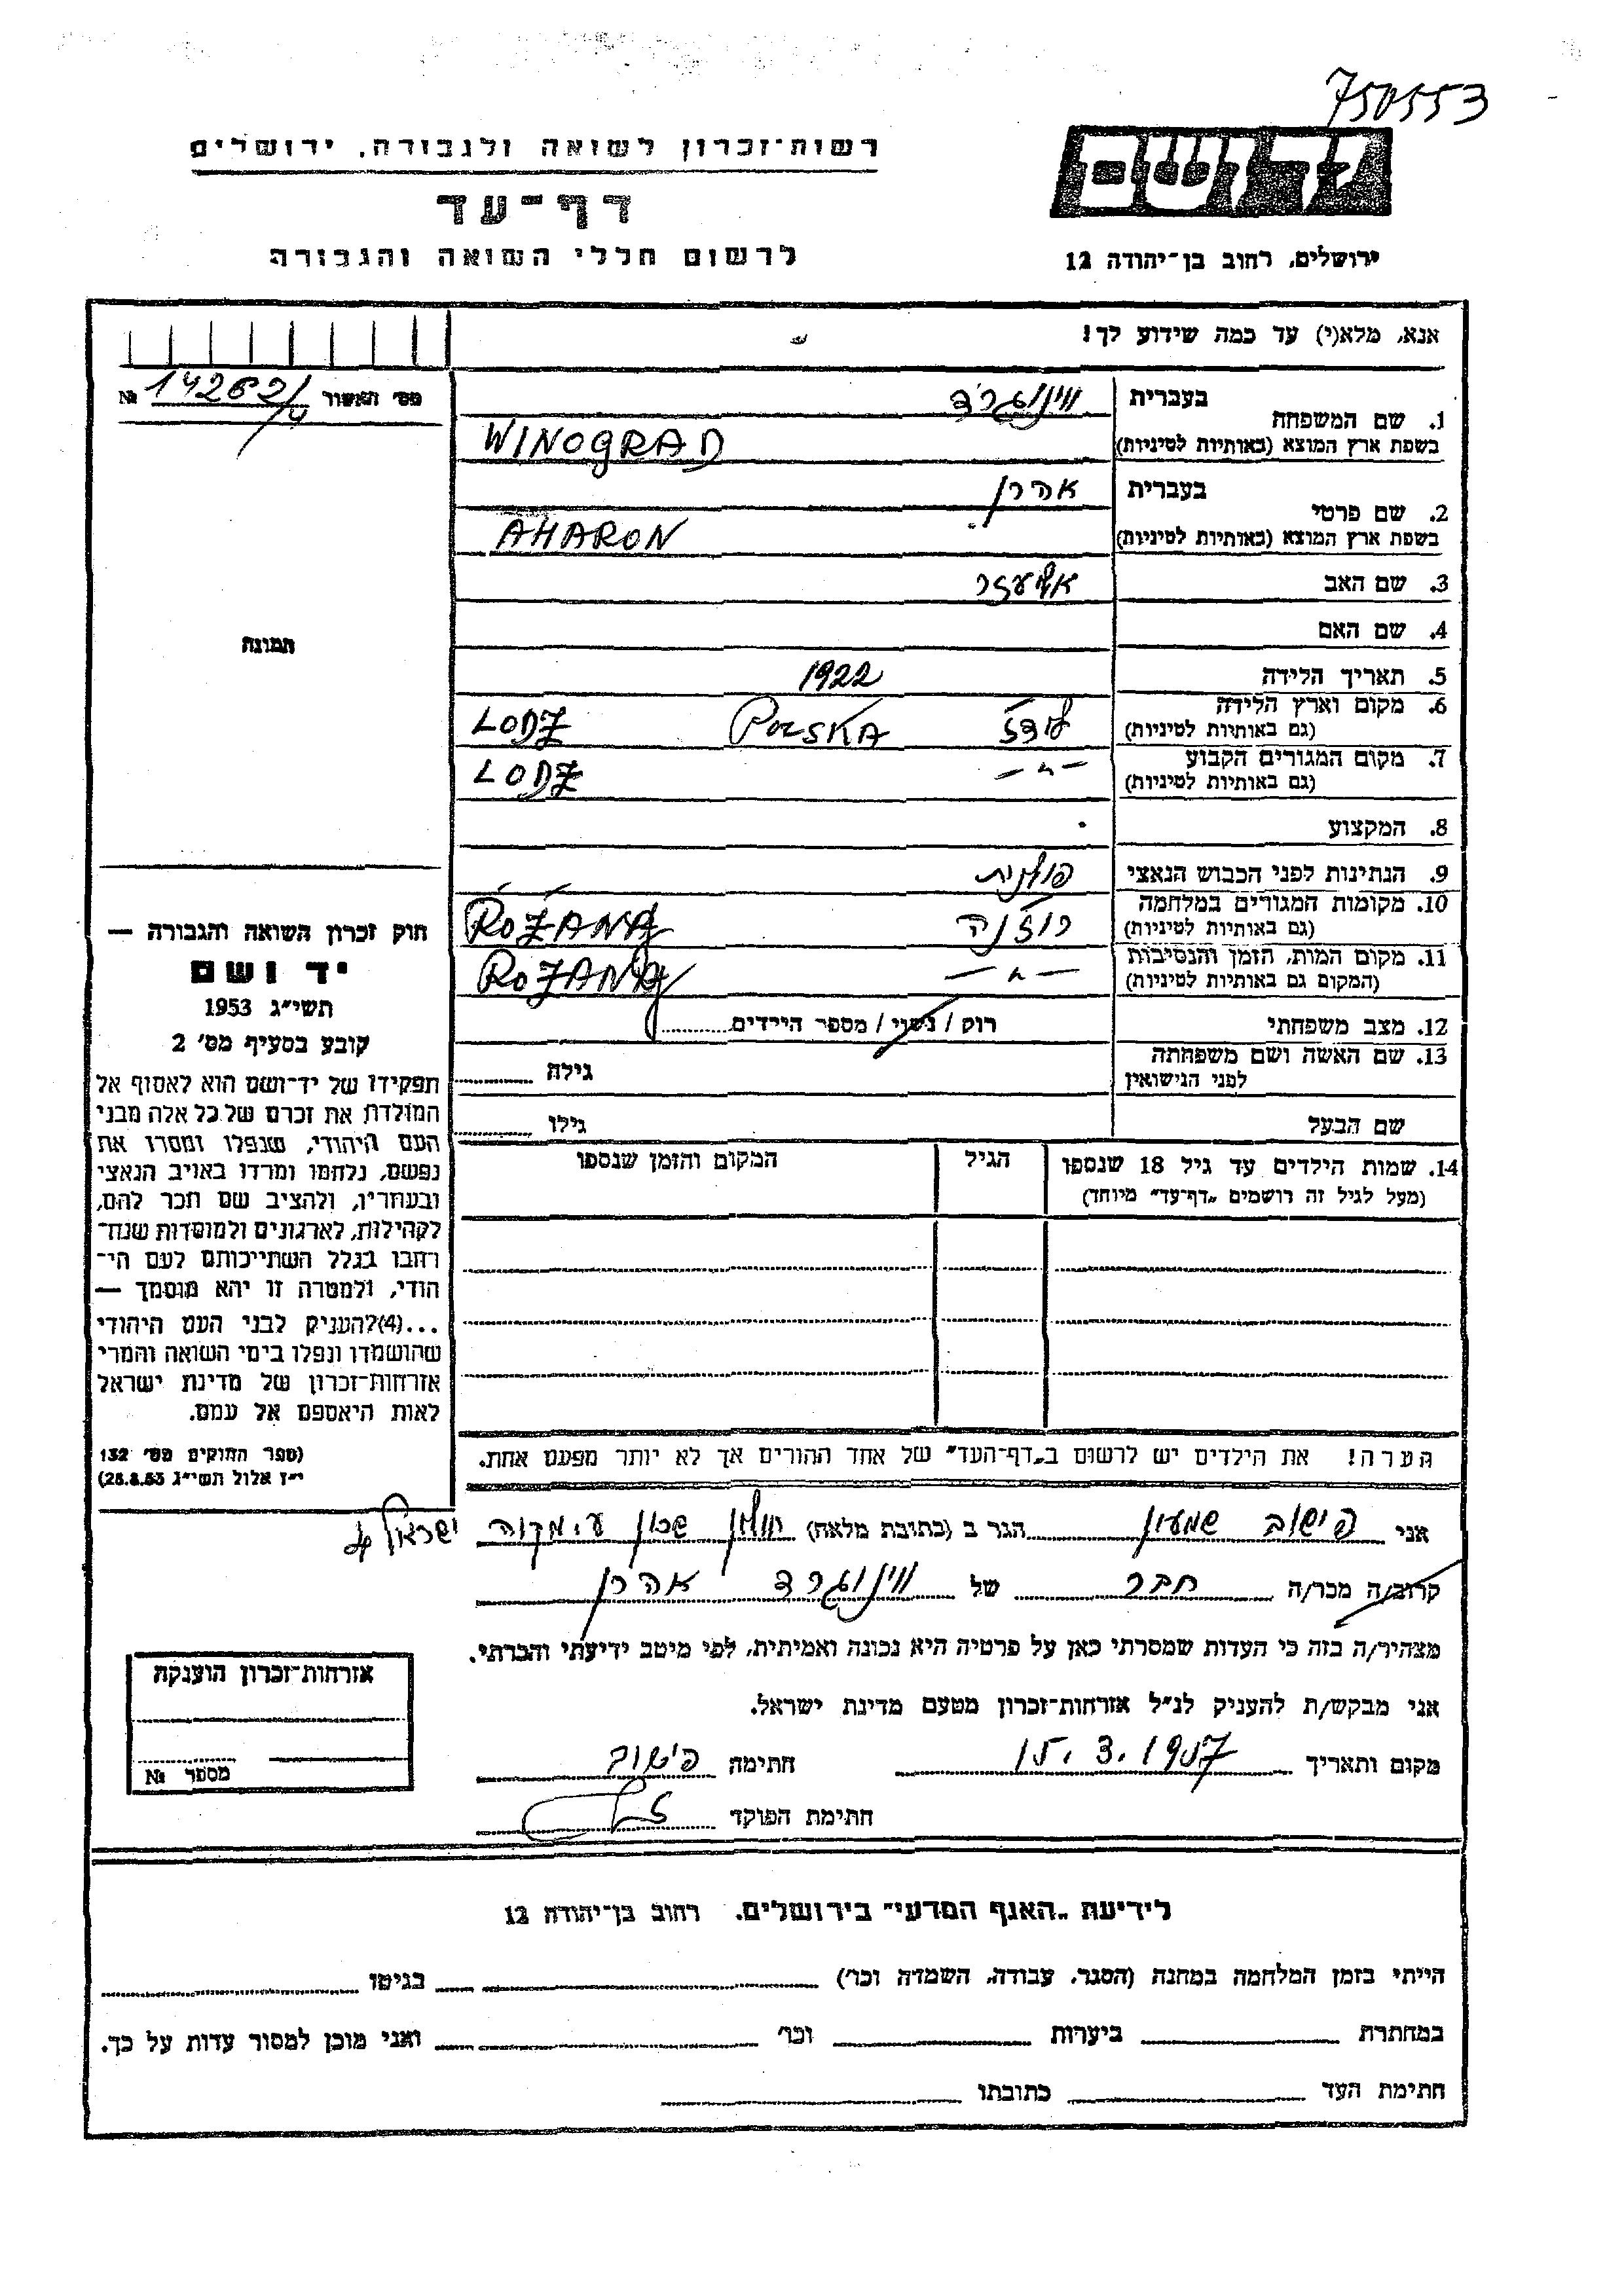 750553
יד ושם
רשות־זכרון לשואה ולגבורה, ירושלים
דף־עד
לרשום חללי השואה והגבורה
ירושלים, רחוב בן־יהודה 12
אנא, מלא(י) עד כמה שידוע לך!
מס' תאשור 14262/4 №
בעברית ווינוגרד
1. שם המשפחה
בשפת ארץ המוצא (באותיות לטיניות) WINOGRAD
בעברית אהרן
2. שם פרטי
בשפת ארץ המוצא (באותיות לטיניות) AHARON
3. שם האב אליעזר
4. שם האם
תמונה
5. תאריך הלידה 1922
6. מקום וארץ הלידה לודז' POLSKA LODZ
(גם באותיות לטיניות)
7. מקום המגורים הקבוע —״— LODZ
(גם באותיות לטיניות)
8. המקצוע
9. הנתינות לפני הכבוש הנאצי פולנית
10. מקומות המגורים במלחמה רוז'נה RÓŻANA
(גם באותיות לטיניות)
11. מקום המות, הזמן והנסיבות —״— ROZANA
(המקום גם באותיות לטיניות)
12. מצב משפחתי רוק / נשוי / מספר הילדים
13. שם האשה ושם משפחתה גילה
לפני הנישואין
שם הבעל גילו
14. שמות הילדים עד גיל 18 שנספו הגיל המקום והזמן שנספו
(מעל לגיל זה רושמים „דף־עד" מיוחד)
חוק זכרון השואה והגבורה —
יד ושם
תשי״ג 1953
קובע בסעיף מס' 2
תפקידו של יד־ושם הוא לאסוף אל
המולדת את זכרם של כל אלה מבני
העם היהודי, שנפלו ומסרו את
נפשם, נלחמו ומרדו באויב הנאצי
ובעוזריו, ולהציב שם וזכר להם,
לקהילות, לארגונים ולמוסדות שנח־
רבו בגלל השתייכותם לעם הי־
הודי, ולמטרה זו יהא מוסמך —
...(4)להעניק לבני העם היהודי
שהושמדו ונפלו בימי השואה והמרי
אזרחות־זכרון של מדינת ישראל
לאות היאספם אל עמם.
(ספר החוקים מס' 132
י״ז אלול תשי״ג 28.8.53)
הערה! את הילדים יש לרשום ב„דף־העד" של אחד ההורים אך לא יותר מפעם אחת.
אני פישוב שמעון הגר ב (כתובת מלאה) חולון שכון ע. מקוה ישראל
קרוב/ה מכר/ה חבר של ווינוגרד אהרן
מצהיר/ה בזה כי העדות שמסרתי כאן על פרטיה היא נכונה ואמיתית, לפי מיטב ידיעתי והכרתי.
אני מבקש/ת להעניק לנ״ל אזרחות־זכרון מטעם מדינת ישראל.
מקום ותאריך 15.3.1957 חתימה פישוב
חתימת הפוקד
אזרחות־זכרון הוענקה
מספר №
לידיעת „האגף המדעי" בירושלים, רחוב בן־יהודה 12
הייתי בזמן המלחמה במחנה (הסגר, עבודה, השמדה וכו') בגיטו
במחתרת ביערות וכו' ואני מוכן למסור עדות על כך.
חתימת העד כתובתו